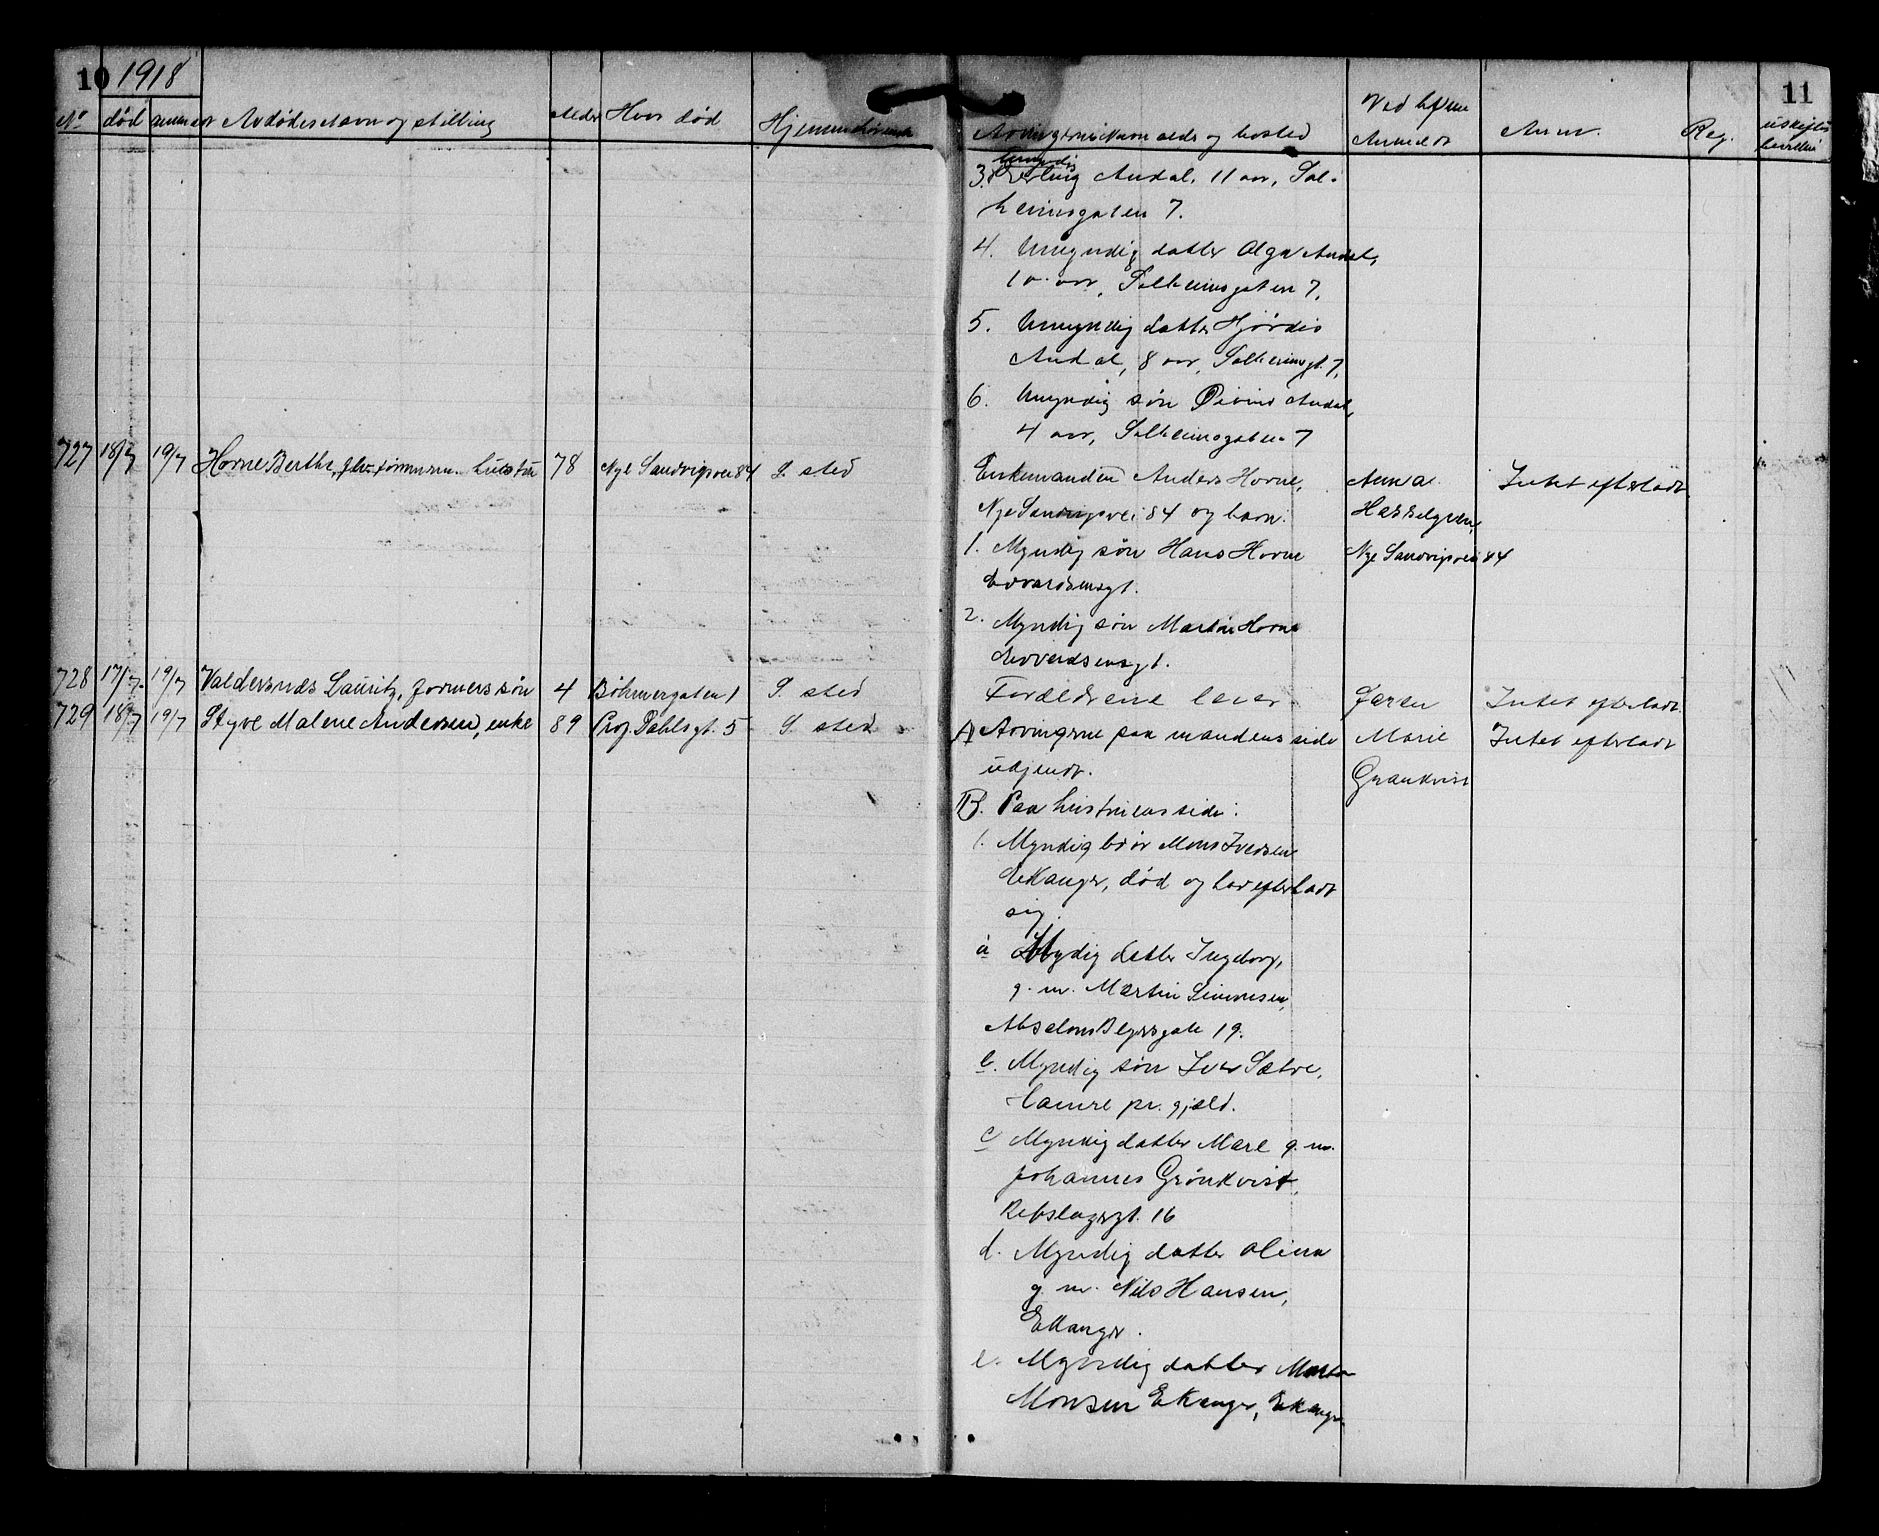 10 1918
No død anmeldt Avdødes navn og stilling Alder Hvor død Hjemmehørende
727 18/7 19/7 Horne Berthe, hustru 78 Nye Sandvigsvei 84 S. sted
728 17/7 19/7 Valdersnes Lauritz, formers søn 4 Bøhmergaten 1 S. sted
729 18/7 19/7 Styve Malene Andersen, enke 89 Prof. Dahlsgt. 5 S. sted
11
Arvingernes navn alder og bosted Ved hvem Anmeldt Anm. Reg. uskiftet bevilling
umyndig
3. Erling Andal, 11 aar, Sol-
heimsgaten 7.
4. Umyndig datter Olga Andal,
10 aar, Solheimsgaten 7.
5. Umyndig datter Hjørdis
Andal, 8 aar, Solheimsgt. 7.
6. Umyndig søn Øivind Andal,
4 aar, Solheimsgaten 7
Enkemanden Anders Horne, Anna Intet efterladt
Nye Sandvigsvei 84 og barn: Hasselgreen,
1. Myndig søn Hans Horne Nye Sandvigsvei 84
Edvardsensgt.
2. Myndig søn Martin Horne
Edvardsensgt.
Forældrene lever Faren Intet efterladt
A Arvingerne paa mandens side Marie Intet efterladt
ukjendt. Grankvist
B. Paa hustruens side:
1. Myndig bror Mons Iversen
Ekanger, død og har efterladt
sig.
a Mydig datter Ingeborg,
g. m. Martin Simmesen,
Absalon Beyersgate 19.
b. Myndig søn Iver Sætre,
Hamre pr. gjæld.
c Myndig datter Mare g. m.
Johannes Grönkvist,
Rebslagergt. 16
d. Myndig datter Olina
g. m. Nils Hansen,
Ekanger.
e. Myndig datter Marta
Monsen Ekanger, Ekanger